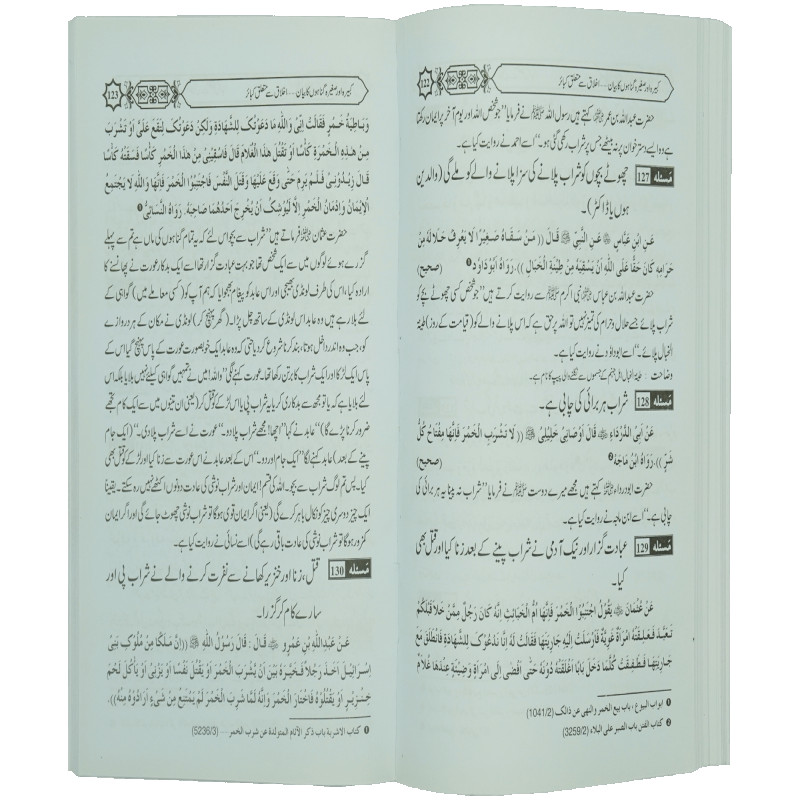 122
کبیرہ اور صغیرہ گناہوں کا بیان — اخلاق سے متعلق کبائر
حضرت عبداللہ بن عمر کہتے ہیں رسول اللہ ﷺ نے فرمایا ’’جو شخص اللہ اور یوم آخر پر ایمان رکھتا
ہے وہ ایسے دسترخوان پر نہ بیٹھے جس پر شراب رکھی گئی ہو۔‘‘ اسے احمد نے روایت کیا ہے۔
مسئلہ 127 چھوٹے بچوں کو شراب پلانے کی سزا پلانے والے کو ملے گی (والدین
ہوں یا ڈاکٹر)۔
عَنِ ابْنِ عَبَّاسٍ ؓ عَنِ النَّبِيِّ ﷺ قَالَ (( مَنْ سَقَاهُ صَغِيْرًا لَا يَعْرِفُ حَلَالَهُ مِنْ
حَرَامِهِ كَانَ حَقًّا عَلَى اللّٰهِ أَنْ يَسْقِيَهُ مِنْ طِيْنَةِ الْخَبَالِ )). رَوَاهُ أَبُوْدَاوُدَ ❶ (صحیح)
حضرت عبداللہ بن عباس نبی اکرم ﷺ سے روایت کرتے ہیں ’’جو شخص کسی چھوٹے بچے کو
شراب پلائے جسے حلال و حرام کی تمیز نہیں تو اللہ پر حق ہے کہ اس پلانے والے کو (قیامت کے روز) طینۃ
الخبال پلائے۔‘‘ اسے ابوداؤد نے روایت کیا ہے۔
وضاحت : طینۃ الخبال اہل جہنم کے جسموں سے نکلنے والی پیپ کا نام ہے۔
مسئلہ 128 شراب ہر برائی کی چابی ہے۔
عَنْ أَبِي الدَّرْدَاءِ ؓ قَالَ أَوْصَانِيْ خَلِيْلِيْ ﷺ (( لَا تَشْرَبِ الْخَمْرَ فَإِنَّهَا مِفْتَاحُ كُلِّ
شَرٍّ )). رَوَاهُ ابْنُ مَاجَهْ ❷ (صحیح)
حضرت ابودرداء کہتے ہیں مجھے میرے دوست ﷺ نے فرمایا ’’شراب نہ پینا یہ ہر برائی کی
چابی ہے۔‘‘ اسے ابن ماجہ نے روایت کیا ہے۔
مسئلہ 129 عبادت گزار اور نیک آدمی نے شراب پینے کے بعد زنا کیا اور قتل بھی
کیا۔
عَنْ عُثْمَانَ ؓ يَقُوْلُ اجْتَنِبُوا الْخَمْرَ فَإِنَّهَا أُمُّ الْخَبَائِثِ إِنَّهُ كَانَ رَجُلٌ مِمَّنْ خَلَا قَبْلَكُمْ
تَعَبَّدَ فَعَلِقَتْهُ امْرَأَةٌ غَوِيَّةٌ فَأَرْسَلَتْ إِلَيْهِ جَارِيَتَهَا فَقَالَتْ لَهُ إِنَّا نَدْعُوْكَ لِلشَّهَادَةِ فَانْطَلَقَ مَعَ
جَارِيَتِهَا فَطَفِقَتْ كُلَّمَا دَخَلَ بَابًا أَغْلَقَتْهُ دُوْنَهُ حَتّٰى أَفْضٰى إِلَى امْرَأَةٍ وَضِيْئَةٍ عِنْدَهَا غُلَامٌ
❶ ابواب البیوع ، باب بیع الخمر والنهی عن ذالک (1041/2)
❷ کتاب الفتن باب الصبر علی البلاء (3259/2)
123
کبیرہ اور صغیرہ گناہوں کا بیان — اخلاق سے متعلق کبائر
وَبَاطِيَةُ خَمْرٍ فَقَالَتْ إِنِّيْ وَاللّٰهِ مَا دَعَوْتُكَ لِلشَّهَادَةِ وَلٰكِنْ دَعَوْتُكَ لِتَقَعَ عَلَيَّ أَوْ تَشْرَبَ
مِنْ هٰذِهِ الْخَمْرَةِ كَأْسًا أَوْ تَقْتُلَ هٰذَا الْغُلَامَ قَالَ فَاسْقِيْنِيْ مِنْ هٰذَا الْخَمْرِ كَأْسًا فَسَقَتْهُ كَأْسًا
قَالَ زِيْدُوْنِيْ فَلَمْ يَرِمْ حَتّٰى وَقَعَ عَلَيْهَا وَقَتَلَ النَّفْسَ فَاجْتَنِبُوا الْخَمْرَ فَإِنَّهَا وَاللّٰهِ لَا يَجْتَمِعُ
الْإِيْمَانُ وَإِدْمَانُ الْخَمْرِ إِلَّا لَيُوْشِكُ أَنْ يُخْرِجَ أَحَدُهُمَا صَاحِبَهُ. رَوَاهُ النَّسَائِيُّ ❶
حضرت عثمان فرماتے ہیں ’’شراب سے بچو اس لئے کہ یہ تمام گناہوں کی ماں ہے تم سے پہلے
گزرے ہوئے لوگوں میں سے ایک شخص تھا جو بہت عبادت گزار تھا اسے ایک بدکار عورت نے پھانسنے کا
ارادہ کیا، اس کی طرف لونڈی بھیجی اور اس عابد کو پیغام بھجوایا کہ ہم آپ کو (کسی معاملے میں) گواہی کے
لئے بلا رہے ہیں وہ عابد اس لونڈی کے ساتھ چل پڑا۔ (گھر پہنچ کر) لونڈی نے مکان کے ہر دروازے
کو، جب وہ اندر داخل ہوتا، بند کرنا شروع کر دیا حتی کہ وہ عابد ایک خوبصورت عورت کے پاس پہنچ گیا اس کے
پاس ایک لڑکا اور ایک شراب کا برتن رکھا تھا۔ عورت کہنے لگی ’’واللہ! میں نے تمہیں گواہی کیلئے نہیں بلایا بلکہ اس
لئے بلایا ہے کہ یا تو مجھ سے بدکاری کر یا یہ شراب پی یا اس لڑکے کو قتل کر (یعنی ان تینوں میں سے ایک کام تجھے
ضرور کرنا پڑے گا)‘‘ عابد نے کہا ’’اچھا! مجھے شراب پلا دو۔‘‘ عورت نے اسے شراب پلا دی۔‘‘ (ایک جام
پینے کے بعد) عابد کہنے لگا ’’ایک جام اور دو۔‘‘ اس کے بعد عابد نے اس عورت سے زنا کیا اور لڑکے کو قتل بھی
کیا۔ پس تم لوگ شراب سے بچو۔ اللہ کی قسم! ایمان اور شراب نوشی کی عادت دونوں اکٹھے نہیں رہ سکتے۔ یقیناً
ایک چیز دوسری چیز کو نکال باہر کرے گی (یعنی اگر ایمان قوی ہوگا تو شراب نوشی چھوٹ جائے گی اور اگر ایمان
کمزور ہوگا تو شراب نوشی کی عادت باقی رہے گی) اسے نسائی نے روایت کیا ہے۔
مسئلہ 130 قتل، زنا اور خنزیر کھانے سے نفرت کرنے والے نے شراب پی اور
سارے کام کر گزرا۔
عَنْ عَبْدِاللّٰهِ بْنِ عَمْرٍو ؓ قَالَ : قَالَ رَسُوْلُ اللّٰهِ ﷺ ((إِنَّ مَلِكًا مِنْ مُلُوْكِ بَنِيْ
إِسْرَائِيْلَ أَخَذَ رَجُلًا فَخَيَّرَهُ بَيْنَ أَنْ يَشْرَبَ الْخَمْرَ أَوْ يَقْتُلَ نَفْسًا أَوْ يَزْنِيَ أَوْ يَأْكُلَ لَحْمَ
خِنْزِيْرٍ أَوْ يَقْتُلُوْهُ فَاخْتَارَ الْخَمْرَ وَإِنَّهُ لَمَّا شَرِبَ الْخَمْرَ لَمْ يَمْتَنِعْ مِنْ شَيْءٍ أَرَادُوْهُ مِنْهُ)).
❶ کتاب الاشربة باب ذکر الآثام المتولدة عن شرب الخمر — (5236/3)